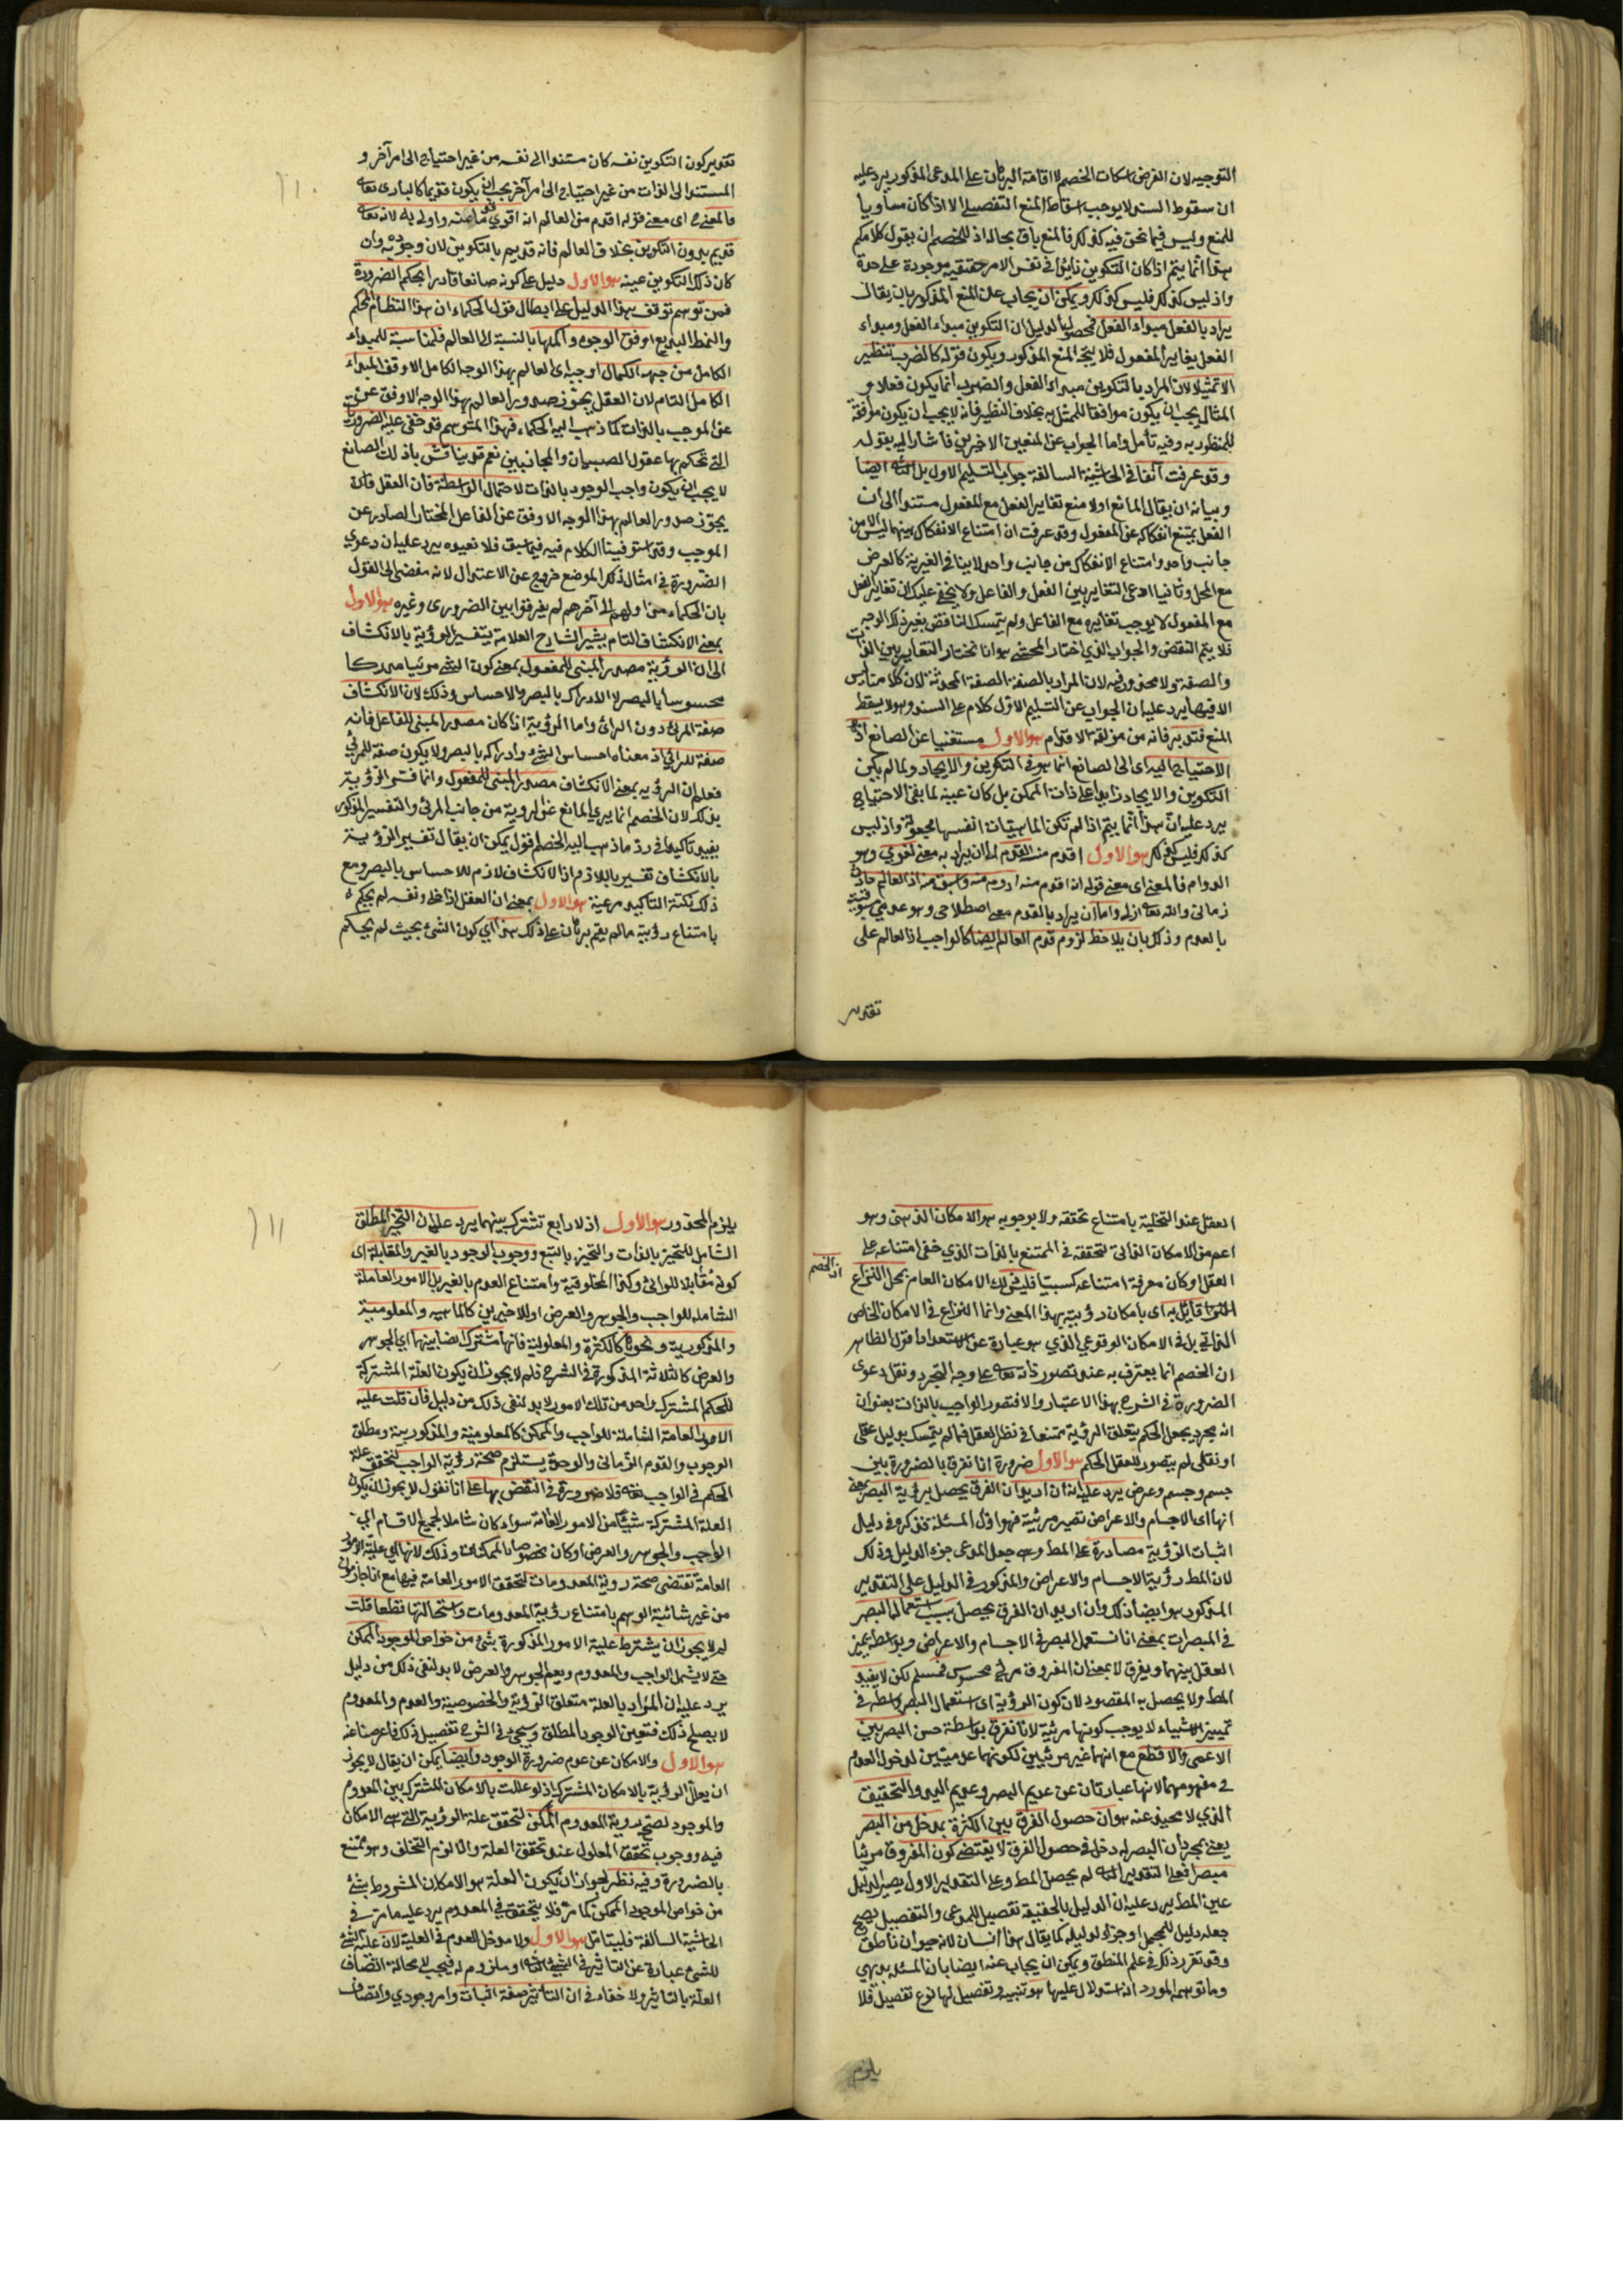 التوجيه لان الغرض اسكات الخصم لا اقامة البرهان على المدعى المذكور يرد عليه
ان سقوط السند لا يوجب اسقاط المنع التفصيلى الا اذا كان مساويا
للمنع وليس فيما نحن فيه كذلك فالمنع باق بحاله اذ للخصم ان يقول كلامكم
هذا انما يتم اذا كان التكوين زائدا فى نفس الامر حقيقيه موجودة على حدة
واذ ليس كذلك فليس كذلك ويمكن ان يجاب عن المنع المذكور بان يقال
يراد بالفعل مبداء الفعل فمحصول الدليل ان التكوين مبداء الفعل ومبداء
الفعل يغاير المفعول فلا يتجه المنع المذكور ويكون قوله كالضرب تنظير
الا تمثيلا لان المراد بالتكوين مبداء الفعل والضرب انما يكون فعلا و
المثال يجب ان يكون موافقا للممثل به بخلاف النظير فانه لا يجب ان يكون موافقة
للمنظور به وفيه تأمل واما الجواب عن المنعين الاخيرين فاشار اليه بقوله
وقد عرفت آنفا فى الحاشية السالفة جواب التسليم الاول بل الثانى ايضا
وبيانه ان يقال المانع اولا منع تغاير الفعل مع المفعول مستندا الى ان
الفعل يمتنع انفكاكه عن المفعول وقد عرفت ان امتناع الانفكاك بينهما ليس الا من
جانب واحد وامتناع الانفكاك من جانب واحد لا ينافى الغيرية كالعرض
مع المحل وثانيا ادعى التغاير بين الفعل والفاعل ولا يخفى عليك ان تغاير الفعل
مع المفعول لا يوجب تغايره مع الفاعل ولم يتمسك الناقض بغير ذلك الوجه
فلا يتم النقض والجواب الذى اختار المحشى هو انا نختار التغاير بين الذات
والصفة ولا محذور فيه لان المراد بالصفة الصفة المحدثة لان كلامنا ليس
الا فيها يرد عليه ان الجواب عن التسليم الاول كلام على السند وهو لا يسقط
المنع فتدبر فانه من مزلقة الاقدام هو الاول مستغنيا عن الصانع اذ
الاحتياج اليه اى الى الصانع انما هو فى التكوين والايجاد ولما لم يكن
التكوين والايجاد زايدا على ذات الممكن بل كان عينه لما بقى الاحتياج
يرد عليه ان هذا انما يتم اذا لم تكن الماهيات انفسها مجعولة واذ ليس
كذلك فليس كذلك هو الاول اقدم منه القدم اما ان يراد به معنى لغوى وهو
الدوام فالمعنى اى معنى قوله انه اقدم منه ادوم منه واسبق منه اذ العالم حادث
زمانى والله تعالى ازلى واما ان يراد بالقدم معنى اصطلاحى وهو عدم مسبوقيته
بالعدم وذلك بان يلاحظ لزوم قدم العالم ايضا كالواجب اذ العالم على
تقدير
تقدير كون التكوين نفسه كان مستندا الى نفسه من غير احتياج الى امر آخر و
المستند الى الذات من غير احتياج الى امر آخر يجب ان يكون قديما كالبارى تعالى
فالمعنى ح اى معنى قوله اقدم من العالم انه اقوى قدما منه واولى به لانه تعالى
قديم بدون التكوين بخلاف العالم فانه قديم بالتكوين لان وجوده به وان
كان ذلك التكوين عينه هو الاول دليل على كونه صانعا قادرا بحكم الضرورة
فمن توهم توقف هذا الدليل على ابطال قول الحكماء ان هذا النظام المحكم
والنمط البديع اوفق الوجوه واكملها بالنسبة الى العالم فلمناسبة للمبداء
الكامل من جهة الكمال اوجبه اى العالم بهذا الوجه الكامل الاوفق المبداء
الكامل التام لان العقل يجوز صدور العالم بهذا الوجه الاوفق عن
عن الموجب بالذات كما ذهب اليه الحكماء فهذا المتوهم قد خفى عليه الضرورت
التى تحكم بها عقول الصبيان والمجانين نعم قد يناقش باذ ذلك الصانع
لا يجب ان يكون واجب الوجود بالذات لاحتمال الواسطة فان العقل قادة
يجوز صدور العالم بهذا الوجه الاوفق عن الفاعل المختار الصادر عن
الموجب وقد استوفينا الكلام فيه فيما سبق فلا نعيده يرد عليه ان دعوى
الضرورة فى امثال ذلك الموضع خروج عن الاعتدال لانه مفضى الى القول
بان الحكماء من اولهم الى آخرهم لم يفرقوا بين الضرورى وغيره هو الاول
بمعنى الانكشاف التام يشير الشارح العلامة بتفسير الرؤية بالانكشاف
الى ان الرؤية مصدر المبنى للمفعول بمعنى كون الشئ مرئيا مدركا
محسوسا بالبصر لا الادراك بالبصر والاحساس وذلك لان الانكشاف
صفة المرئى دون الرائى واما الرؤية اذا كان مصدر المبنى للفاعل فانه
صفة للرائى اذ معناه احساس الشئ وادراكه بالبصر ولا يكون صفة للمرئى
فعلم ان الرؤيه بمعنى الانكشاف مصدر المبنى للمفعول وانما فسر الرؤية
بذلك لان الخصم انما يرى المانع عن الروية من جانب المرئى والتفسير المذكور
يفيد تاكيدا فى رد ما ذهب اليه الخصم اقول يمكن ان يقال تفسير الرؤية
بالانكشاف تفسير باللازم اذ الانكشاف لازم للاحساس بالبصر ومع
ذلك نكتة التاكيد مرعية هو الاول بمعنى ان العقل اذا خلى ونفسه لم يحكم
بامتناع رؤيته ما لم يقم برهان على ذلك هذا اى كون الشئ بحيث لم يحكم
العقل عند التخلية بامتناع تحققه ولا بوجوبه هو الامكان الذهنى وهو
اعم من الامكان الذاتى لتحققه فى الممتنع بالذات الذى خفى امتناعه على
العقل او كان معرفة امتناعه كسبيا فليس ذلك الامكان العام بمحل النزاع
قائل به اى بامكان رؤيته بهذا المعنى وانما النزاع فى الامكان الخاص
الذاتى بل فى الامكان الوقوعى الذى هو عبارة عن الاستعداد اقول الظاهر
ان الخصم انما يعترف به عند تصور ذاته تعالى على وجه التجرد ونقل دعوى
الضرورة فى الشرح بهذا الاعتبار والا فتصور الواجب بالذات بعنوان
انه مجرد يجعل الحكم بتعلق الرؤية ممتنعا فى نظر العقل فما لم يتمسك بدليل عقلى
او نقلى لم يتصور للعقل الحكم هو الاول ضرورة انا نفرق بالضرورة بين
جسم وجسم وعرض يرد عليه انه ان اريد ان الفرق يحصل برؤية البصر بمعنى
انها اى الاجسام والاعراض تصير مرئية فهو اول المسئلة فذكره فى دليل
اثبات الرؤية مصادرة على المط وهى جعل المدعى جزء الدليل وذلك
لان المط رؤية الاجسام والاعراض والمذكور فى الدليل على التقدير
المذكور هو ايضا ذلك وان اريد ان الفرق يحصل بسبب استعمال البصر
فى المبصرات بمعنى انا نستعمل البصر فى الاجسام والاعراض وبواسطته يميز
العقل بينهما ويفرق لا بمعنى ان المفروق مرئى محسوس فمسلم لكن لا يفيد
المط ولا يحصل به المقصود لان كون الرؤية اى استعمال البصر واسطة فى
تمييز الاشياء لا يوجب كونها مرئية لانا نفرق بواسطة حس البصر بين
الاعمى والاقطع مع انهما غير مرئيين لكونهما عدميين لدخول العدم
فى مفهومهما لانهما عبارتان عن عديم البصر وعديم اليد والتحقيق
الذى لا محيد عنه هو ان حصول الفرق بين الكثرة بمدخل من البصر
يعنى بمجرد ان البصر له دخل فى حصول الفرق لا يقتضى كون المفروق مرئيا
مبصرا فعلى التقدير الثانى لم يحصل المط وعلى التقدير الاول يصير الدليل
عين المط يرد عليه ان الدليل بالحقيقة تفصيل للمدعى والتفصيل يصح
جعله دليل للمجمل او جزء لدليله كما يقال هذا انسان لانه حيوان ناطق
وقد تقرر ذلك فى علم المنطق ويمكن ان يجاب عنه ايضا بان المسئله بديهي
وما توهمه المورد انه استدلال عليها هو تنبيه وتفصيل لها نوع تفصيل فلا
يلزم
يلزم المحذور هو الاول اذ لا رابع تشترك بينهما يرد عليه ان التحيز المطلق
الشامل للتحيز بالذات والتحيز بالتبع ووجوب الوجود بالغير والمقابلة اى
كونه مقابلا للرائى وكذا المخلوقية وامتناع العدم بالغير بل الامور العامة
الشاملة للواجب والجوهر والعرض او للاخيرين كالماهيه والمعلومية
والمذكورية ونحوها كالكثرة والمعلولية فانها مشترك ايضا بينهما اى الجوهر
والعرض كالثلاثة المذكورة فى الشرح فلم لا يجوز ان يكون العلة المشتركة
للحكم المشترك واحد من تلك الامور لا بد لنفى ذلك من دليل فان قلت علية
الامور العامة الشاملة للواجب والممكن كالمعلومية والمذكورية ومطلق
الوجوب والقدم الزمانى والوحدة يستلزم صحة رؤية الواجب لتحقق علة
الحكم فى الواجب تعالى فلا ضرورة فى النقض بها على انا نقول لا يجوز ان يكون
العلة المشتركة شيئا من الامور العامة سواء كان شاملا لجميع الاقسام اى
الواجب والجوهر والعرض او كان مخصوصا بالممكنات وذلك لانها اى علية الامور
العامة تقتضى صحة روية المعدومات لتحقق الامور العامة فيها مع انا جازمون
من غير شائبة الوهم بامتناع رؤية المعدومات واستحالتها قطعا قلت
لم لا يجوز ان يشترط علية الامور المذكورة بشئ من خواص الموجود الممكن
حتى لا يشمل الواجب والمعدوم ويعم الجوهر والعرض لا بد لنفى ذلك من دليل
يرد عليه ان المراد بالعلة متعلق الرؤية والخصوصية والعدم والمعدوم
لا يصلح ذلك فتعين الوجود المطلق وسيجئ فى الشرح تفصيل ذلك فاعرضنا عنه
هو الاول والامكان عن عدم ضرورة الوجود وايضا يمكن ان يقال لا يجوز
ان يعلل الرؤية بالامكان المشترك اذ لو عللت بالامكان المشترك بين المعدوم
والموجود لصح روية المعدوم الممكن لتحقق علة الرؤية التى هى الامكان
فيه ووجوب تحقق المعلول عند تحقق العلة والا لزم التخلف وهو ممتنع
بالضرورة وفيه نظر لجواز ان يكون العلة هو الامكان المشروط بشئ
من خواص الموجود الممكن كما مر فلا يتحقق فى المعدوم يرد عليه ما مر فى
الحاشية السالفة فليتامل هو الاول ولا مدخل للعدم فى العلية لان علية الشئ
للشئ عبارة عن التاثير فى الشئ الثانى او ملزوم له فيجب لا محالة اتصاف
العلة بالتاثير ولا خفاء فى ان التاثير صفة اثبات وامر وجودى واتصاف